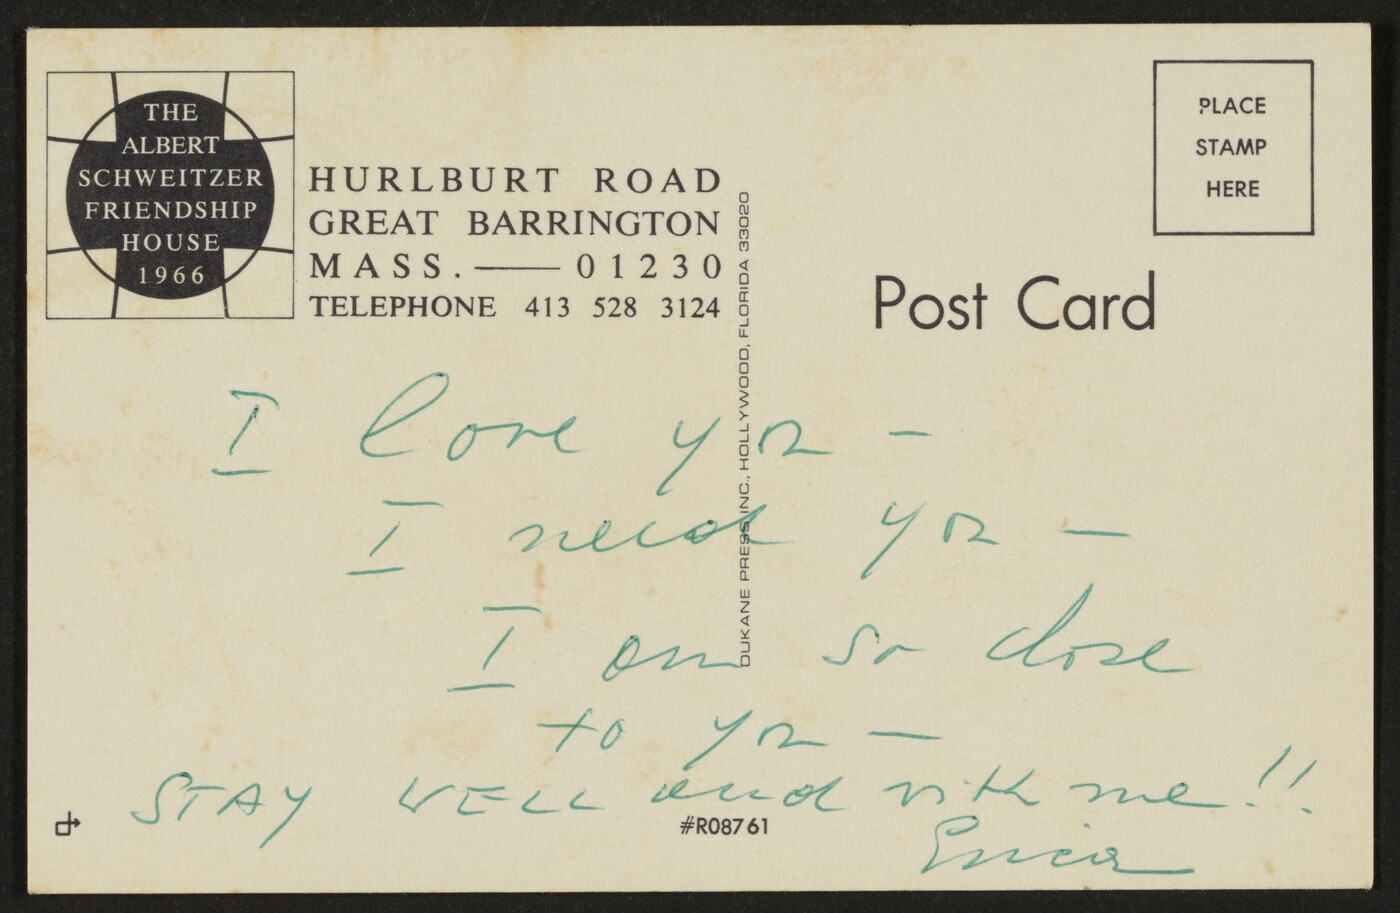 THE
ALBERT
SCHWEITZER
FRIENDSHIP
HOUSE
1966
HURLBURT ROAD
GREAT BARRINGTON
MASS. — 01230
TELEPHONE 413 528 3124
DUKANE PRESS INC., HOLLYWOOD, FLORIDA 33020
PLACE
STAMP
HERE
Post Card
I love you —
I need you —
I am so close
to you —
STAY WELL and with me!!
Erica
#R08761